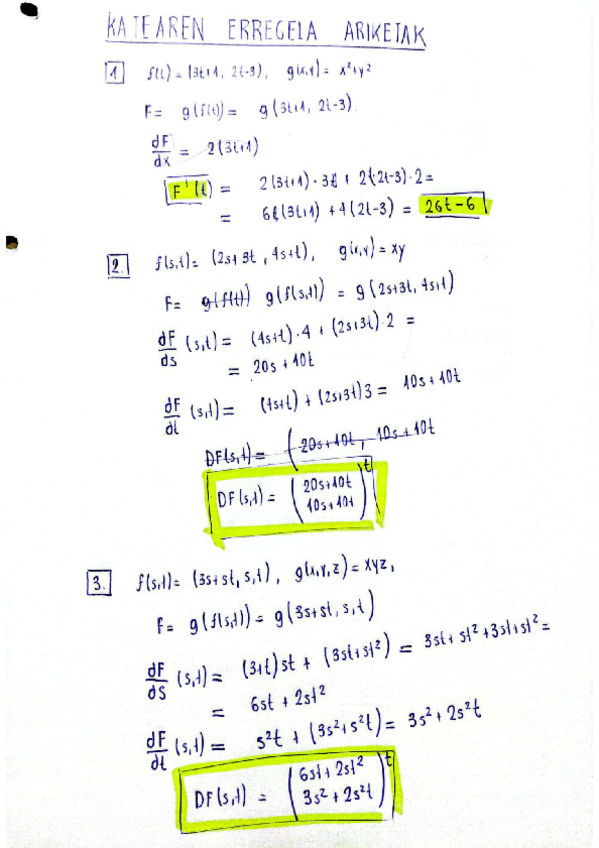 KATEAREN ERREGELA ARIKETAK
1 f(t) = (3t+1, 2t-3), g(x,y) = x²+y²
F = g(f(t)) = g(3t+1, 2t-3).
dF/dx = 2(3t+1)
F'(t) = 2(3t+1)·3t + 2(2t-3)·2 =
= 6t(3t+1) + 4(2t-3) = 26t-6
2. f(s,t) = (2s+3t, 4s+t), g(x,y) = xy
F = g(f(t)) g(f(s,t)) = g(2s+3t, 4s+t)
dF/ds (s,t) = (4s+t)·4 + (2s+3t)·2 =
= 20s + 10t
dF/dt (s,t) = (4s+t) + (2s+3t)3 = 10s+10t
DF(s,t) = (20s+10t, 10s+10t
DF(s,t) = (20s+10t
10s+10t)^t
3. f(s,t) = (3s+st, s, t), g(x,y,z) = xyz,
F = g(f(s,t)) = g(3s+st, s, t)
dF/ds (s,t) = (3+t)st + (3st+st²) = 3st+st²+3st+st² =
= 6st + 2st²
dF/dt (s,t) = s²t + (3s²+s²t) = 3s²+2s²t
DF(s,t) = (6st+2st²
3s²+2s²t)^t